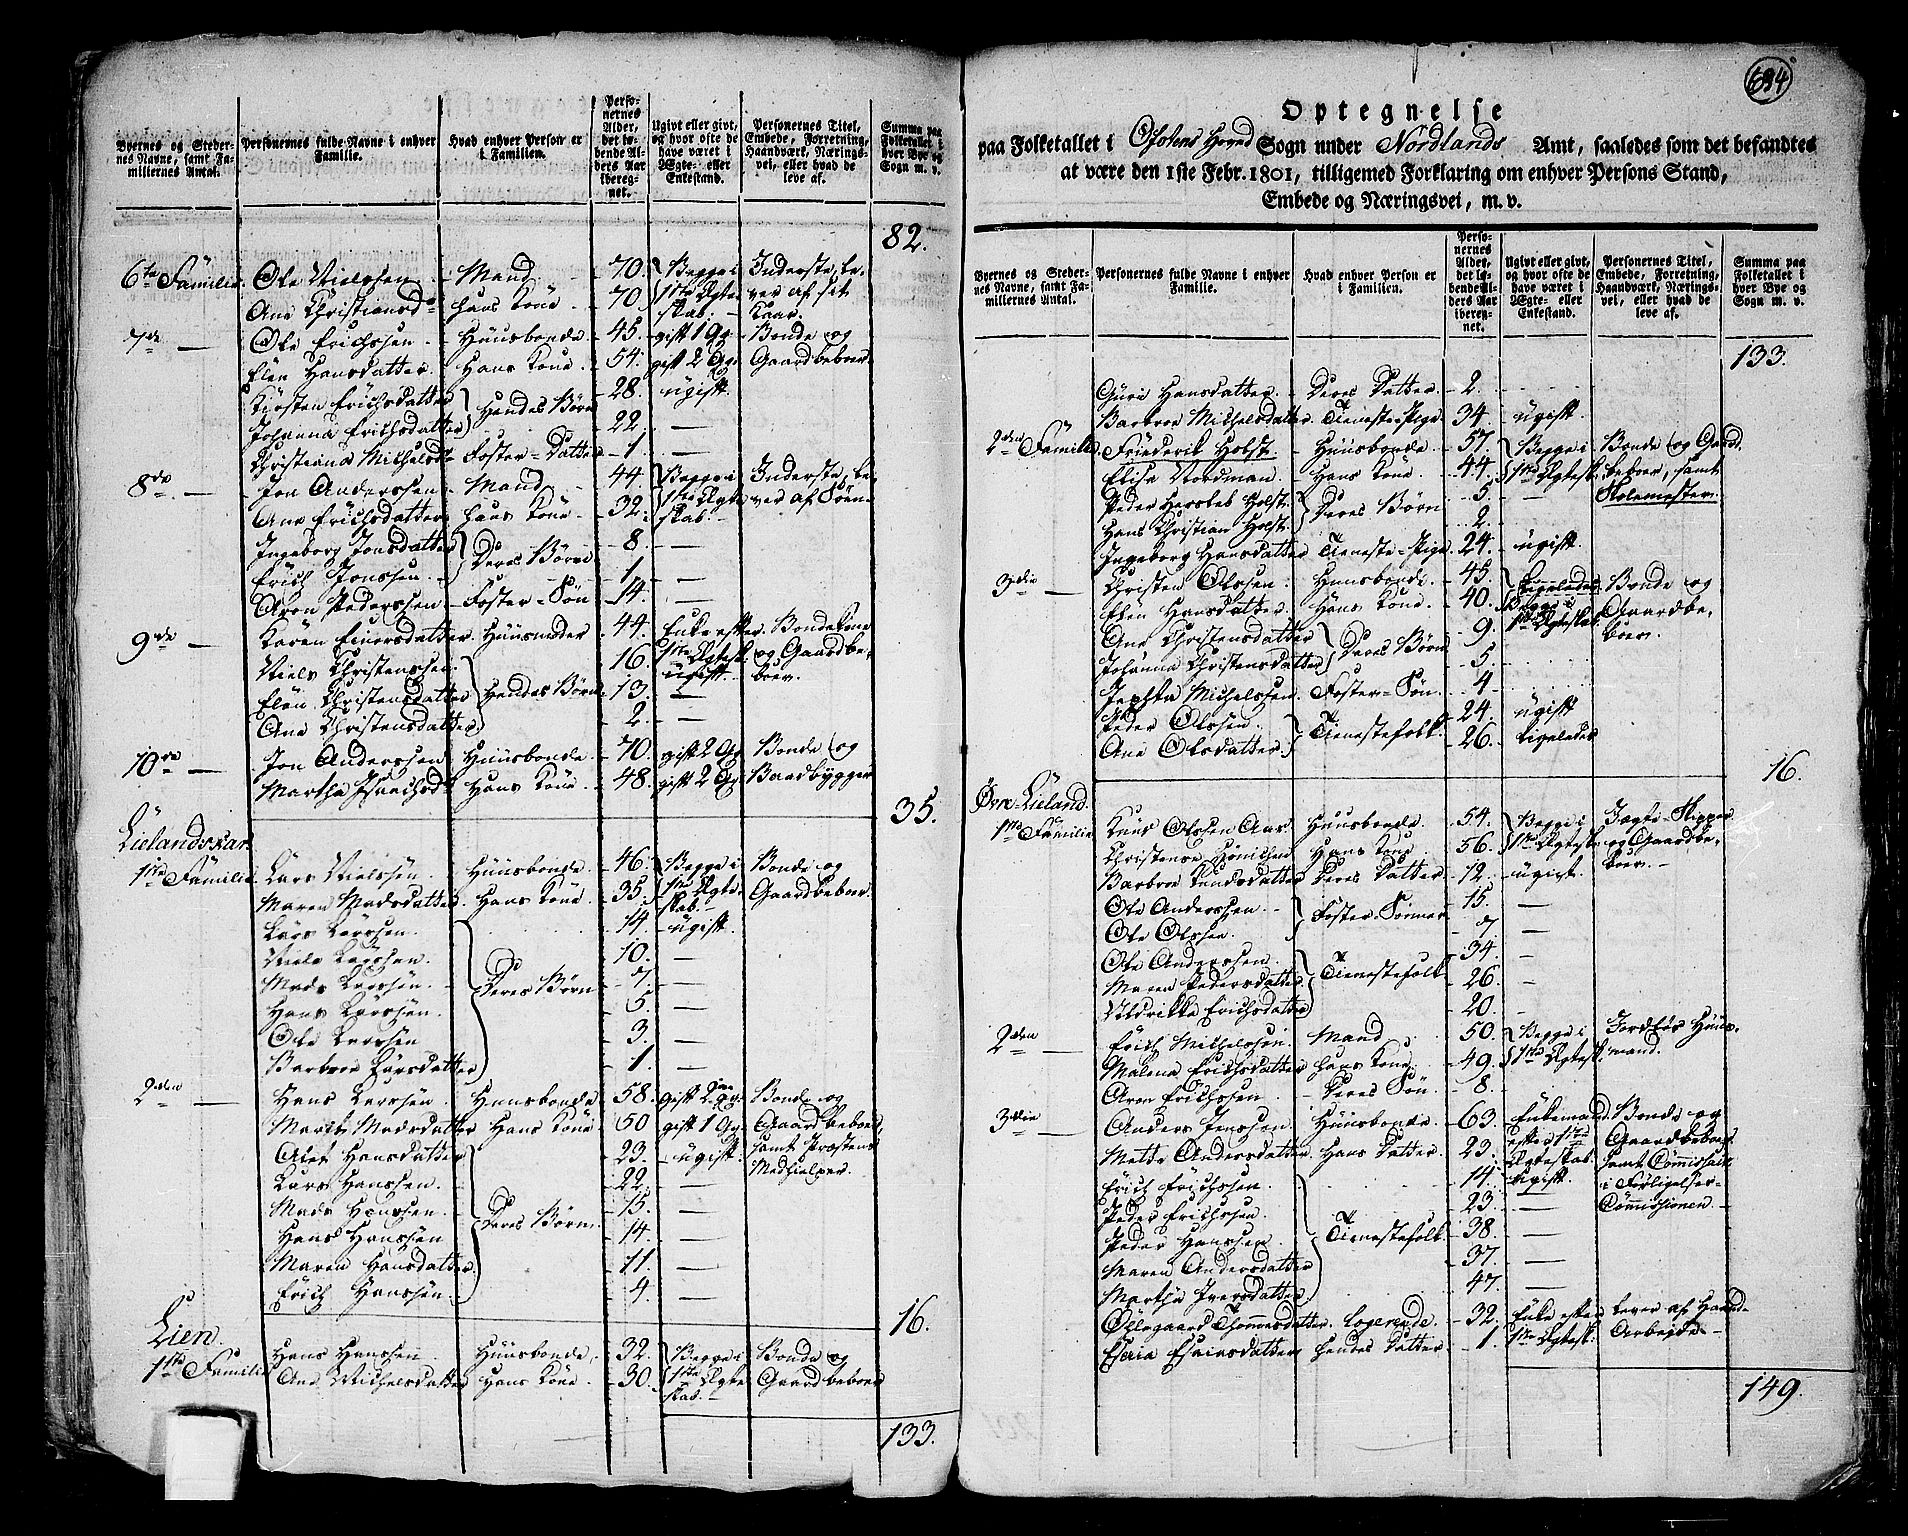 Byernes og Stedernes Navne, samt Familiernes Antal.
Personernes fulde Navne i enhver Familie.
Hvad enhver Person er i Familien.
Personernes Alder, det løbende Alders Aar iberegnet.
Ugivt eller givt, og hvor ofte de have været i Ægte- eller Enkestand.
Personernes Titel, Embede, Forretning, Haandværk, Næringsvei, eller hvad de leve af.
Summa paa Folketallet i hver Bye og Sogn m. v.
82.
6te Familie. Ole Nielssen - Mand - 70. Begge i 1ste Ægteskab. Inderste, lever af sit Kaar.
Ane Christiansd. hans Kone - 70
7de — Ole Erichssen - Huusbonde - 45. gift 1 Gg. Bonde og Gaardbeboer
Elen Hansdatter. Hans Kone. 54. gift 2 Gg.
Kirsten Erichsdatter Hendes Børn 28. ugift.
Johanna Erichsdatter 22. —
Christiana Michelsd. Foster-Datter 1. —
8de. — Jon Anderssen - Mand - 44. Begge i 1ste Ægteskab. Inderste, lever af Søen
Ane Erichsdatter hans Kone - 32.
Ingeborg Jonsdatter Deres Børn 8. —
Erich Jonssen. 1. —
Aron Pederssen - Foster-Søn 14. —
9de — Karen Einersdatter. Huusmoder 44. Enke efter 1ste Ægtesk. Bondekone og Gaardbeboer.
Niels Christenssen. Hendes Børn 16. ugift.
Elen Christensdatter 13. —
Ane Christensdatter. 2. —
10de — Jon Anderssen Huusbonde. 70. gift 2 Gg. Bonde og
Martha Isachsd. Hans Kone - 48. gift 2 Gg. Baadbygger
35.
Lielandskar.
1ste Familie. Lars Nielssen. Huusbonde. 46. Begge i 1ste Ægteskab. Bonde og Gaardbeboer.
Maren Madsdatter. Hans Kone. 35.
Lars Larssen. Deres Børn 14. ugift.
Niels Larssen. 10. —
Mads Larssen. 7. —
Hans Larssen. 5. —
Ole Larssen 3. —
Barbroe Larsdatter 1. —
2den — Hans Larssen - Huusbonde 58. gift 2 Gg. Bonde og
Marith Madsdatter Hans Kone 50 gift 1 Gg. Gaardbeboer, samt Præstens Medhielper.
Olet Hansdatter Deres Børn. 23. ugift.
Lars Hanssen. 22. —
Mads Hanssen 15. —
Hans Hanssen 14. —
Maren Hansdatter. 11. —
Erich Hanssen. 4. —
16.
Lien.
1ste Familie Hans Hanssen Huusbonde. 32. Begge i 1ste Ægteskab. Bonde og Gaardbeboer
Ane Michelsdatter Hans Kone. 30.
133.
694
Optegnelse
paa Folketallet i Ofotens Hoved Sogn under Nordlands Amt, saaledes som det befandtes
at være den 1ste Febr. 1801, tilligemed Forklaring om enhver Persons Stand,
Embede og Næringsvei, m. v.
Byernes og Stedernes Navne, samt Familiernes Antal.
Personernes fulde Navne i enhver Familie.
Hvad enhver Person er i Familien.
Personernes Alder, det løbende Alders Aar iberegnet.
Ugivt eller givt, og hvor ofte de have været i Ægte- eller Enkestand.
Personernes Titel, Embede, Forretning, Haandværk, Næringsvei, eller hvad de leve af.
Summa paa Folketallet i hver Bye og Sogn m. v.
133.
Guri Hansdatter. Deres Datter - 2.
Barbroe Michelsdatter. Tieneste-Pige. 34. ugift.
2den Familie Friederik Holst. Huusbonde. 57. Begge i 1ste Ægtesk. Bonde og Gaardbeboer, samt Skolemester.
Elise Nordman. Hans Kone. 44.
Peder Herseleb Holst. Deres Børn 5. —
Hans Christian Holst. 2.
Ingeborg Hansdatter. Tieneste-Pige. 24. ugift.
3die — Christen Olssen. Huusbonde. 45. Ligeledes Begge i 1ste Ægteskab. Bonde og Gaardbeboer.
Elen Hansdatter. Hans Kone. 40.
Ane Christensdatter Deres Børn 9.
Johanna Christensdatter 5.
Jephta Michelssen. Foster-Søn. 4
Peder Olssen. Tienestefolk 24. ugift
Ane Olsdatter. 26. Ligeledes
16.
Øvre-Lieland.
1ste Familie Knus Olssen Aas. Huusbonde. 54. Begge i 1ste Ægtesk. Jagte-Skipper og Gaardbeboer. —
Christense Hans Kone. 56.
Barbroe Knudsdatter Deres Datter - 12. ugift.
Ole Anderssen - Foster Sønner 15. —
Ole Olssen. 7. —
Ole Anderssen. Tienestefolk 34. —
Maren Pedersdatter. 26. —
Uldrikke Erichsdatter 20. —
2den — Erich Michelssen. Mand 50. Begge i 1ste Ægtesk. Jordløs Huusmand.
Malena Erichsdatter hans Kone 49.
Aron Erichssen - Deres Søn 8.
3die — Anders Jenssen. Huusbonde. 63. Enkemand efter 1ste Ægteskab. Bonde og Gaardbeboer samt Commissair i Forligelses-Commissionen.
Mette Andersdatter. Hans Datter. 23. ugift.
Erich Erichssen. 14.
Peder Erichssen. Tienestefolk 23. —
Peder Hanssen. 38. —
Maren Andersdatter 37. —
Martha Iversdatter 47. —
Ollegaard Thommesdatter. Logerende. 32. Enke efter 1ste Ægtesk. Lever af Haand-Arbeide -
Esaia Esaiasdatter hendes Datter 1.
149.